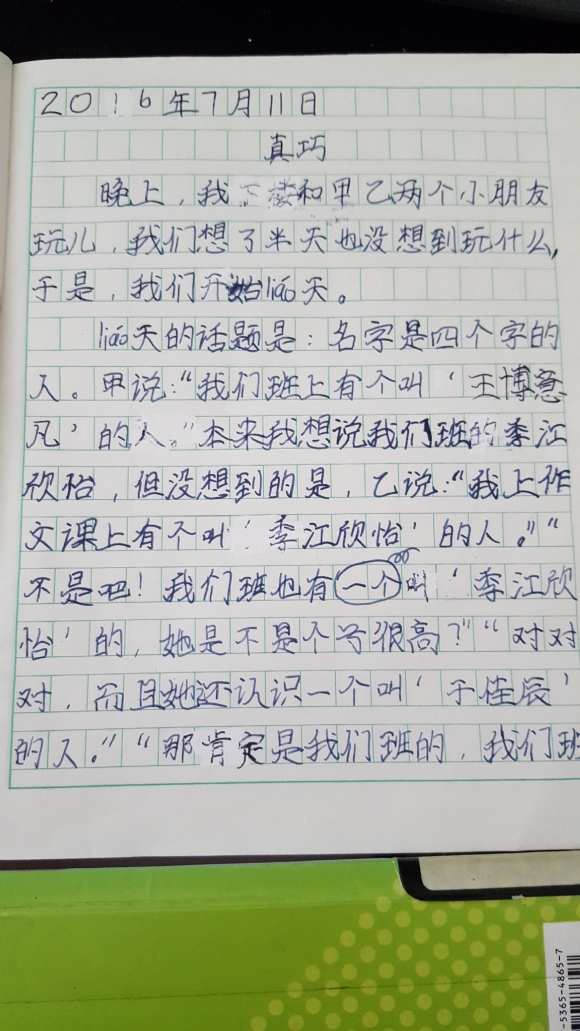 2016年7月11日
真巧
晚上，我下楼和甲乙两个小朋友
玩儿，我们想了半天也没想到玩什么，
于是，我们开始liáo天。
liáo天的话题是：名字是四个字的
人。甲说：“我们班上有个叫‘王博意
凡’的人。”本来我想说我们班的季江
欣怡，但没想到的是，乙说：“我上作
文课上有个叫‘季江欣怡’的人。”“
不是吧！我们班也有一个叫‘季江欣
怡’的，她是不是个号很高？”“对对
对，而且她还认识一个叫‘于佳辰’
的人。”“那肯定是我们班的，我们班
-5365-4865-7